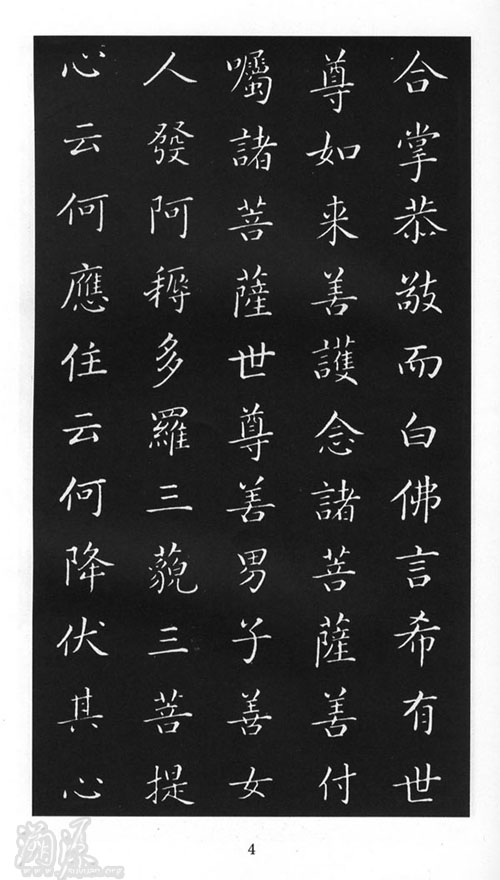 合掌恭敬而白佛言希有世
尊如来善護念諸菩薩善付
囑諸菩薩世尊善男子善女
人發阿耨多羅三藐三菩提
心云何應住云何降伏其心
4